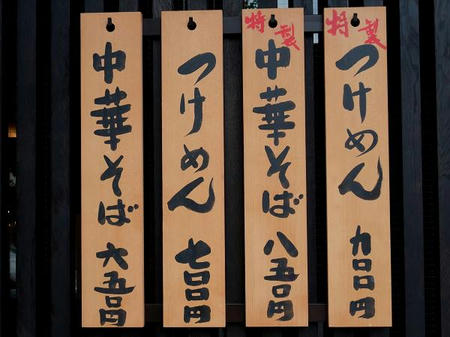 特製 つけめん 九〇〇円
特製 中華そば 八五〇円
つけめん 七〇〇円
中華そば 六五〇円